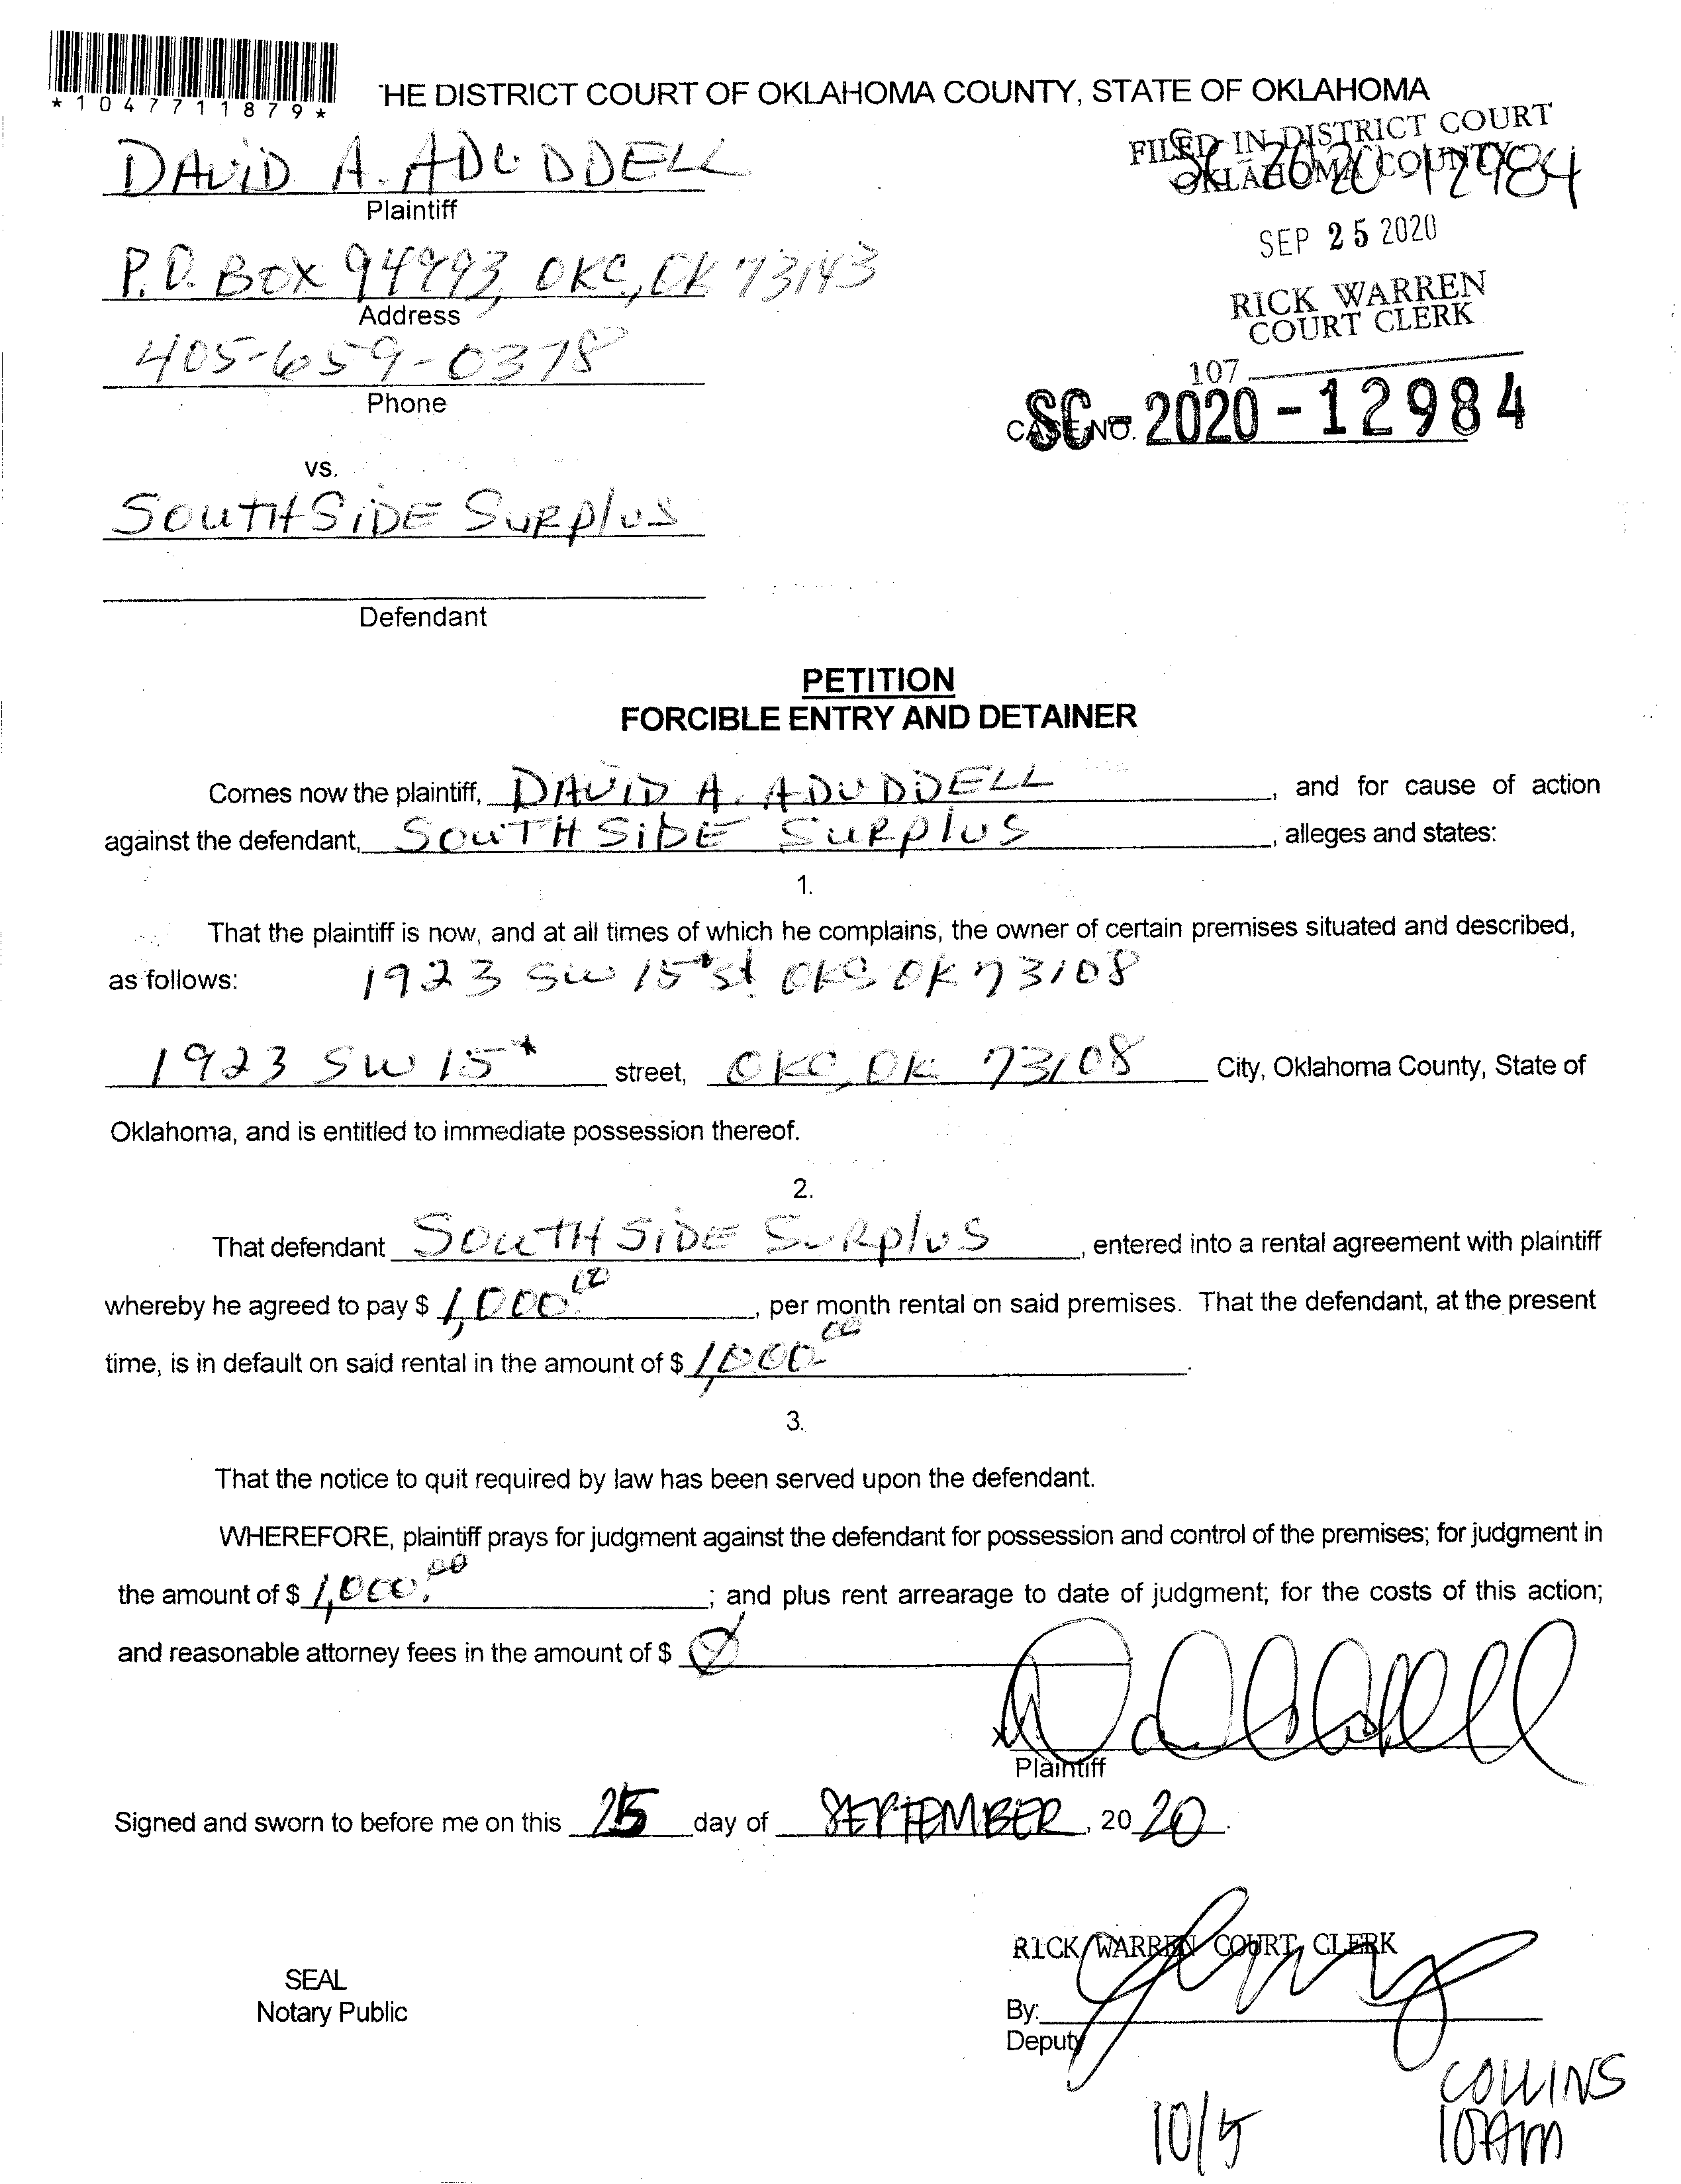 *1047711879*
HE DISTRICT COURT OF OKLAHOMA COUNTY, STATE OF OKLAHOMA
FILED IN DISTRICT COURT
OKLAHOMA COUNTY
SC 2020 12984
DAVID A. ADUDDELL
Plaintiff
SEP 25 2020
P.O. BOX 94993, OKC, OK 73143
Address
RICK WARREN
COURT CLERK
405-659-0378
Phone
107
CASE NO. SC-2020-12984
vs.
SOUTHSIDE SURPlus
Defendant
PETITION
FORCIBLE ENTRY AND DETAINER
Comes now the plaintiff, DAVID A. ADUDDELL, and for cause of action
against the defendant, SOUTHSIDE SURPlus, alleges and states:
1.
That the plaintiff is now, and at all times of which he complains, the owner of certain premises situated and described,
as follows: 1923 SW 15 st OKC OK 73108
1923 SW 15 street, OKC, OK 73108 City, Oklahoma County, State of
Oklahoma, and is entitled to immediate possession thereof.
2.
That defendant SOUTHSIDE SURPlus, entered into a rental agreement with plaintiff
whereby he agreed to pay $ 1,000.00, per month rental on said premises. That the defendant, at the present
time, is in default on said rental in the amount of $ 1,000.00.
3.
That the notice to quit required by law has been served upon the defendant.
WHEREFORE, plaintiff prays for judgment against the defendant for possession and control of the premises; for judgment in
the amount of $ 1,000.00; and plus rent arrearage to date of judgment; for the costs of this action;
and reasonable attorney fees in the amount of $ Ø
Plaintiff
Signed and sworn to before me on this 25 day of SEPTEMBER, 2020.
RICK WARREN COURT CLERK
SEAL
Notary Public
By:
Deputy
COLLINS
10/5 10AM